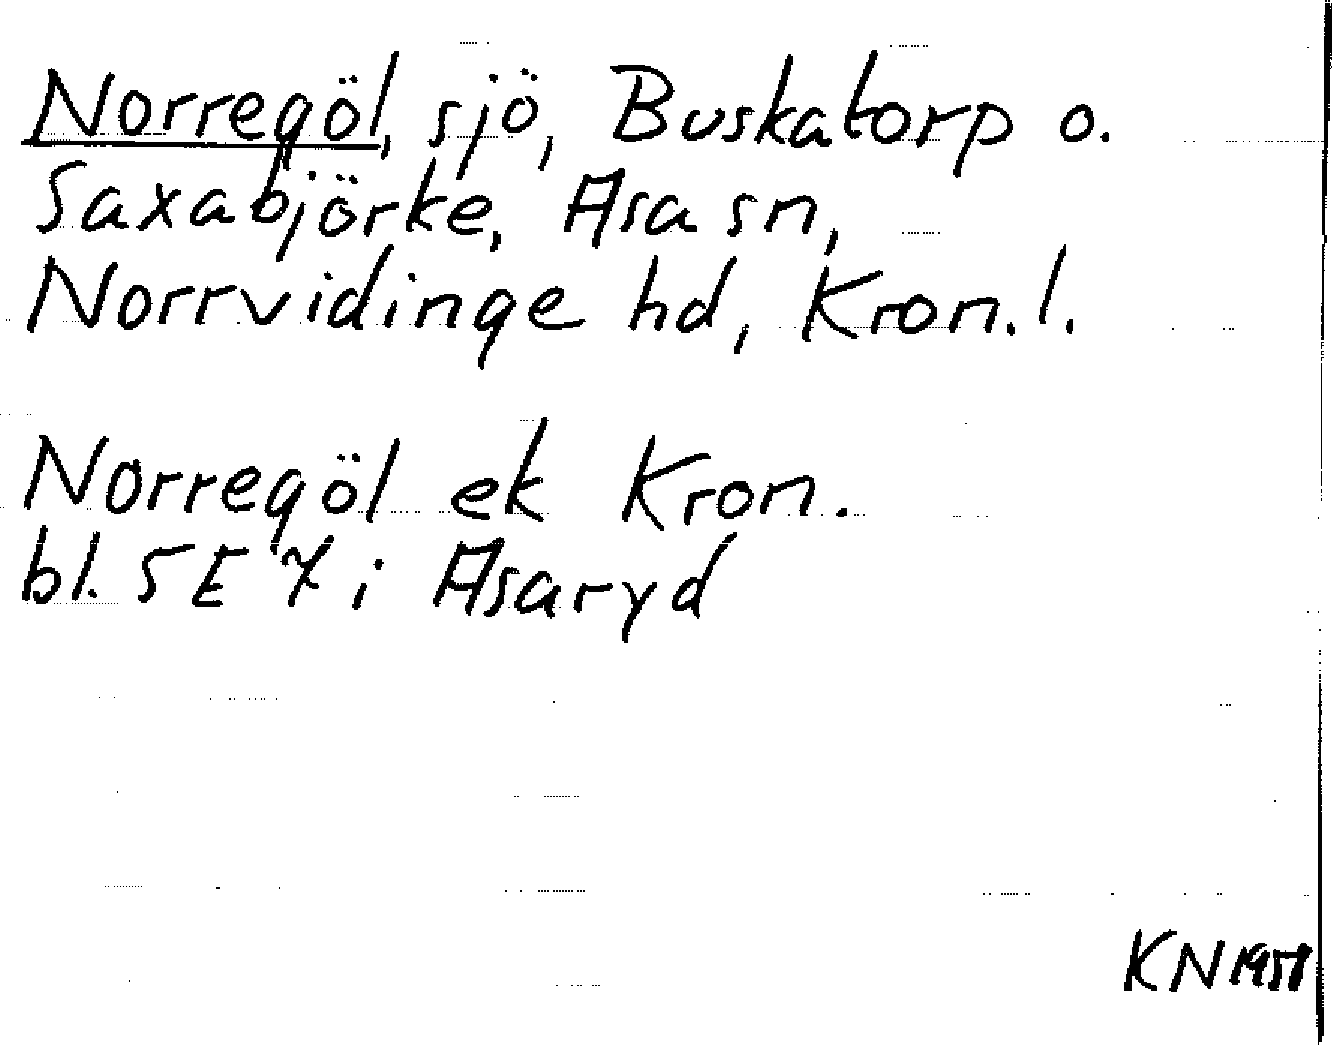 Norregöl, sjö, Buskatorp o.
Saxabjörke, Asa sn,
Norrvidinge hd, Kron. l.
Norregöl ek Kron.
bl. 5 E 7 i Asaryd
KN